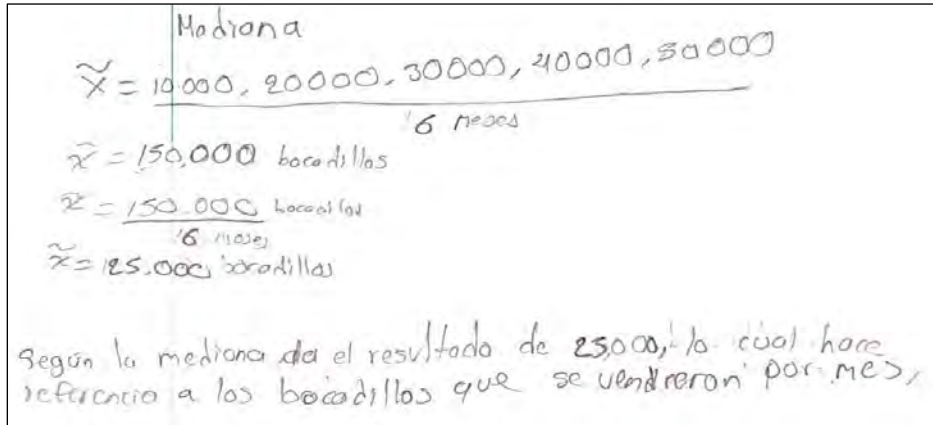 Mediana
x̃ = 10.000, 20000, 30000, 40000, 50000
6 meses
x̃ = 150,000 bocadillos
x̃ = 150.000 bocadillos
6 meses
x̃ = 25.000 bocadillos
Según la mediana da el resultado de 25,000, lo cual hace
referencia a los bocadillos que se vendieron por mes,